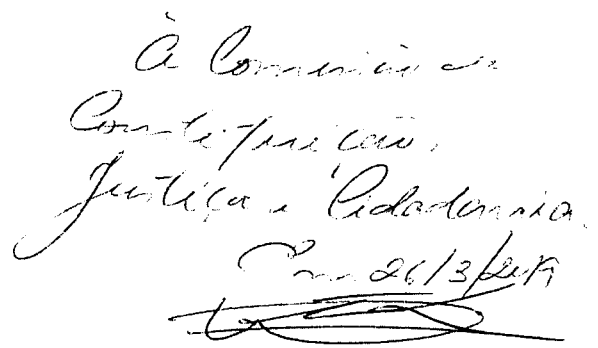 À Comissão de
Constituição,
Justiça e Cidadania.
Em 26/3/2019